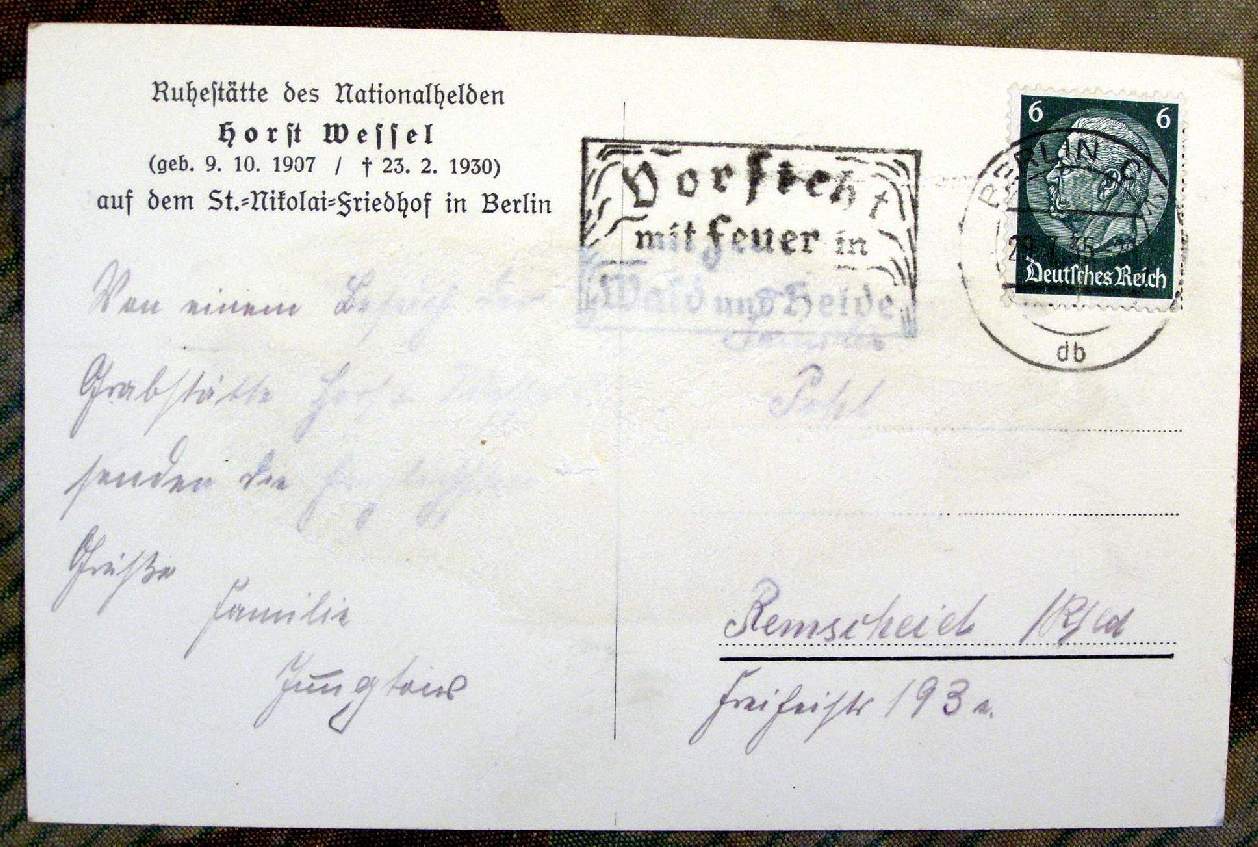 Ruhestätte des Nationalhelden
Horst Wessel
(geb. 9. 10. 1907 / † 23. 2. 1930)
auf dem St.-Nikolai-Friedhof in Berlin
Von einem Besuch der
Grabstätte Horst
senden die herzlichsten
Grüße
Familie
Vorsicht
mit Feuer in
Wald und Heide
BERLIN C
db
6 6
Deutsches Reich
Familie
Pohl
Remscheid /Rhld
193 a.